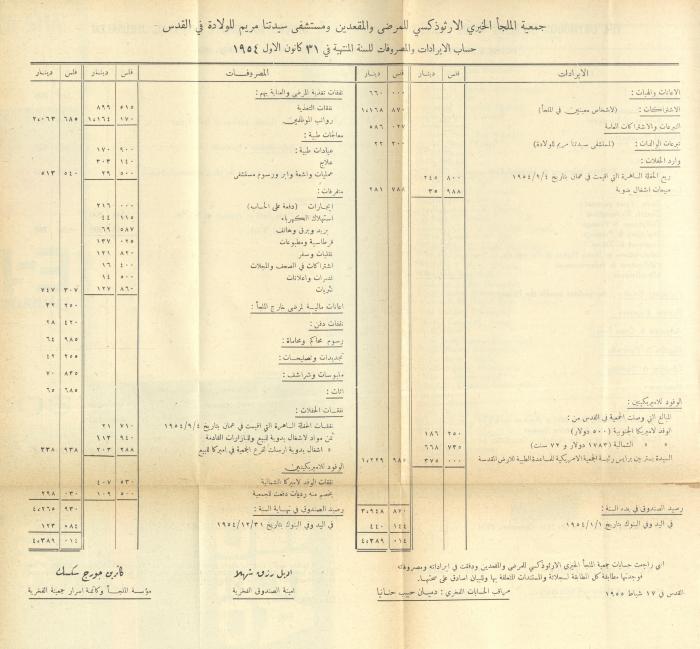 جمعية الملجأ الخيري الارثوذكسي للمرضى والمقعدين ومستشفى سيدتنا مريم للولادة في القدس
حساب الايرادات والمصروفات للسنة المنتهية في ٣١ كانون الاول ١٩٥٤
الايرادات فلس دينار فلس دينار
الاعانات والهبات : ٠٠٠ ٦٦٠
الاشتراكات : (لاشخاص معينين في الملجأ) ٨٧٠ ١٠١٦٨
التبرعات والاشتراكات العامة ٠٢٧ ٥٨٦
تبرعات الوالدات : (لمستشفى سيدتنا مريم للولادة) ٣٠٠ ٢٢
وارد الحفلات :
ريع الحفلة الساهرة التي اقيمت في عمان بتاريخ ١٩٥٤/٩/٤ ٨٠٠ ٢٤٥
مبيعات اشغال يدوية ٩٨٨ ٣٥ ٧٨٨ ٢٨١
الوفود للاميريكيتين :
المبالغ التي وصلت الجمعية في القدس من :
الوفد لاميركا الجنوبية (٥٠٠ دولار) ٢٥٠ ١٨٦
» » الشمالية (١٧٨٣ دولار و ٧٢ سنت) ٧٣٥ ٦٦٨
٠٠٠ ٣٧٥ ٩٨٥ ١٠٢٢٩
رصيد الصندوق في بدء السنة : ٨٧٠ ٣٠٩٤٨
في اليد وفي البنوك بتاريخ ١٩٥٤/١/١ ١٤٤ ٤٤٠
٠١٤ ٤٠٣٨٩
المصروفات فلس دينار فلس دينار
نفقات تغذية المرضى والعناية بهم :
نفقات التغذية ٥١٥ ٨٩٩
رواتب الموظفين ١٧٠ ١٠١٦٤ ٦٨٥ ٢٠٠٦٣
معالجات طبية :
عيادات طبية : ٩٠٠ ١٧٠
علاج ١٤٠ ٣٠٣
عمليات واشعة وابر ورسوم مستشفى ٥٠٠ ٣٩ ٥٤٠ ٥١٣
متفرعات :
ايجارات (دفعة على الحساب) ٠٠٠ ٢١٦
استهلاك الكهرباء ١١٥ ٤٤
بريد وبرق وهاتف ٥٨٧ ٦٩
قرطاسية ومطبوعات ٠٢٥ ١٣٧
نقليات وسفر ٨٢٠ ١٢١
اشتراكات في الصحف والمجلات ٤٠٠ ١٦
نشرات واعلانات ٥٠٠ ١٤
نثريات ٨٦٠ ١٢٧ ٣٠٧ ٧٤٧
اعانات مالية لمرضى خارج الملجأ : ٢٥٠ ٣٢
نفقات دفن : ٤٢٠ ٢٨
رسوم محاكم ومحاماة : ٩٨٥ ٦٤
تجديدات وتصليحات : ٢٥٥ ٤٢
ملبوسات وشراشف : ٨٣٥ ٧٠
اثاث : ٦٨٥ ٦٥
نفقات الحفلات :
نفقات الحفلة الساهرة التي اقيمت في عمان بتاريخ ١٩٥٤/٩/٤ ٧١٠ ٢١
ثمن مواد لاشغال يدوية للبيع وللبازارات القادمة ٩٤٠ ١١٣
» اشغال يدوية ارسلت لفرع الجمعية في اميركا للبيع ٢٨٨ ٢٠٣ ٩٣٨ ٣٣٨
الوفود للاميريكيتين
نفقات الوفد لاميركا الشمالية ٥٣٠ ٤٠٧
يخصم منه رديات دفعت للجمعية ٥٠٠ ١٠٩ ٠٣٠ ٢٩٨
رصيد الصندوق في نهاية السنة : ٩٣٠ ٤٠٢٦٥
في اليد وفي البنوك بتاريخ ١٩٥٤/١٢/٣١ ٠٨٤ ١٢٣
٠١٤ ٤٠٣٨٩
اني راجعت حسابات جمعية الملجأ الخيري الارثوذكسي للمرضى والمقعدين ودققت في ايراداته ومصروفاته
فوجدتها مطابقة كل المطابقة لسجلاته والمستندات المتعلقة بها وللبيان اصادق على صحتها.
القدس في ١٧ شباط ١٩٥٥
مراقب الحسابات الفخري : دميان حبيب حنانيا
اديل رزق شهلا
امينة الصندوق الفخرية
كاترين جورج سكسك
مؤسسة الملجأ وكاتمة اسرار جمعيته الفخرية